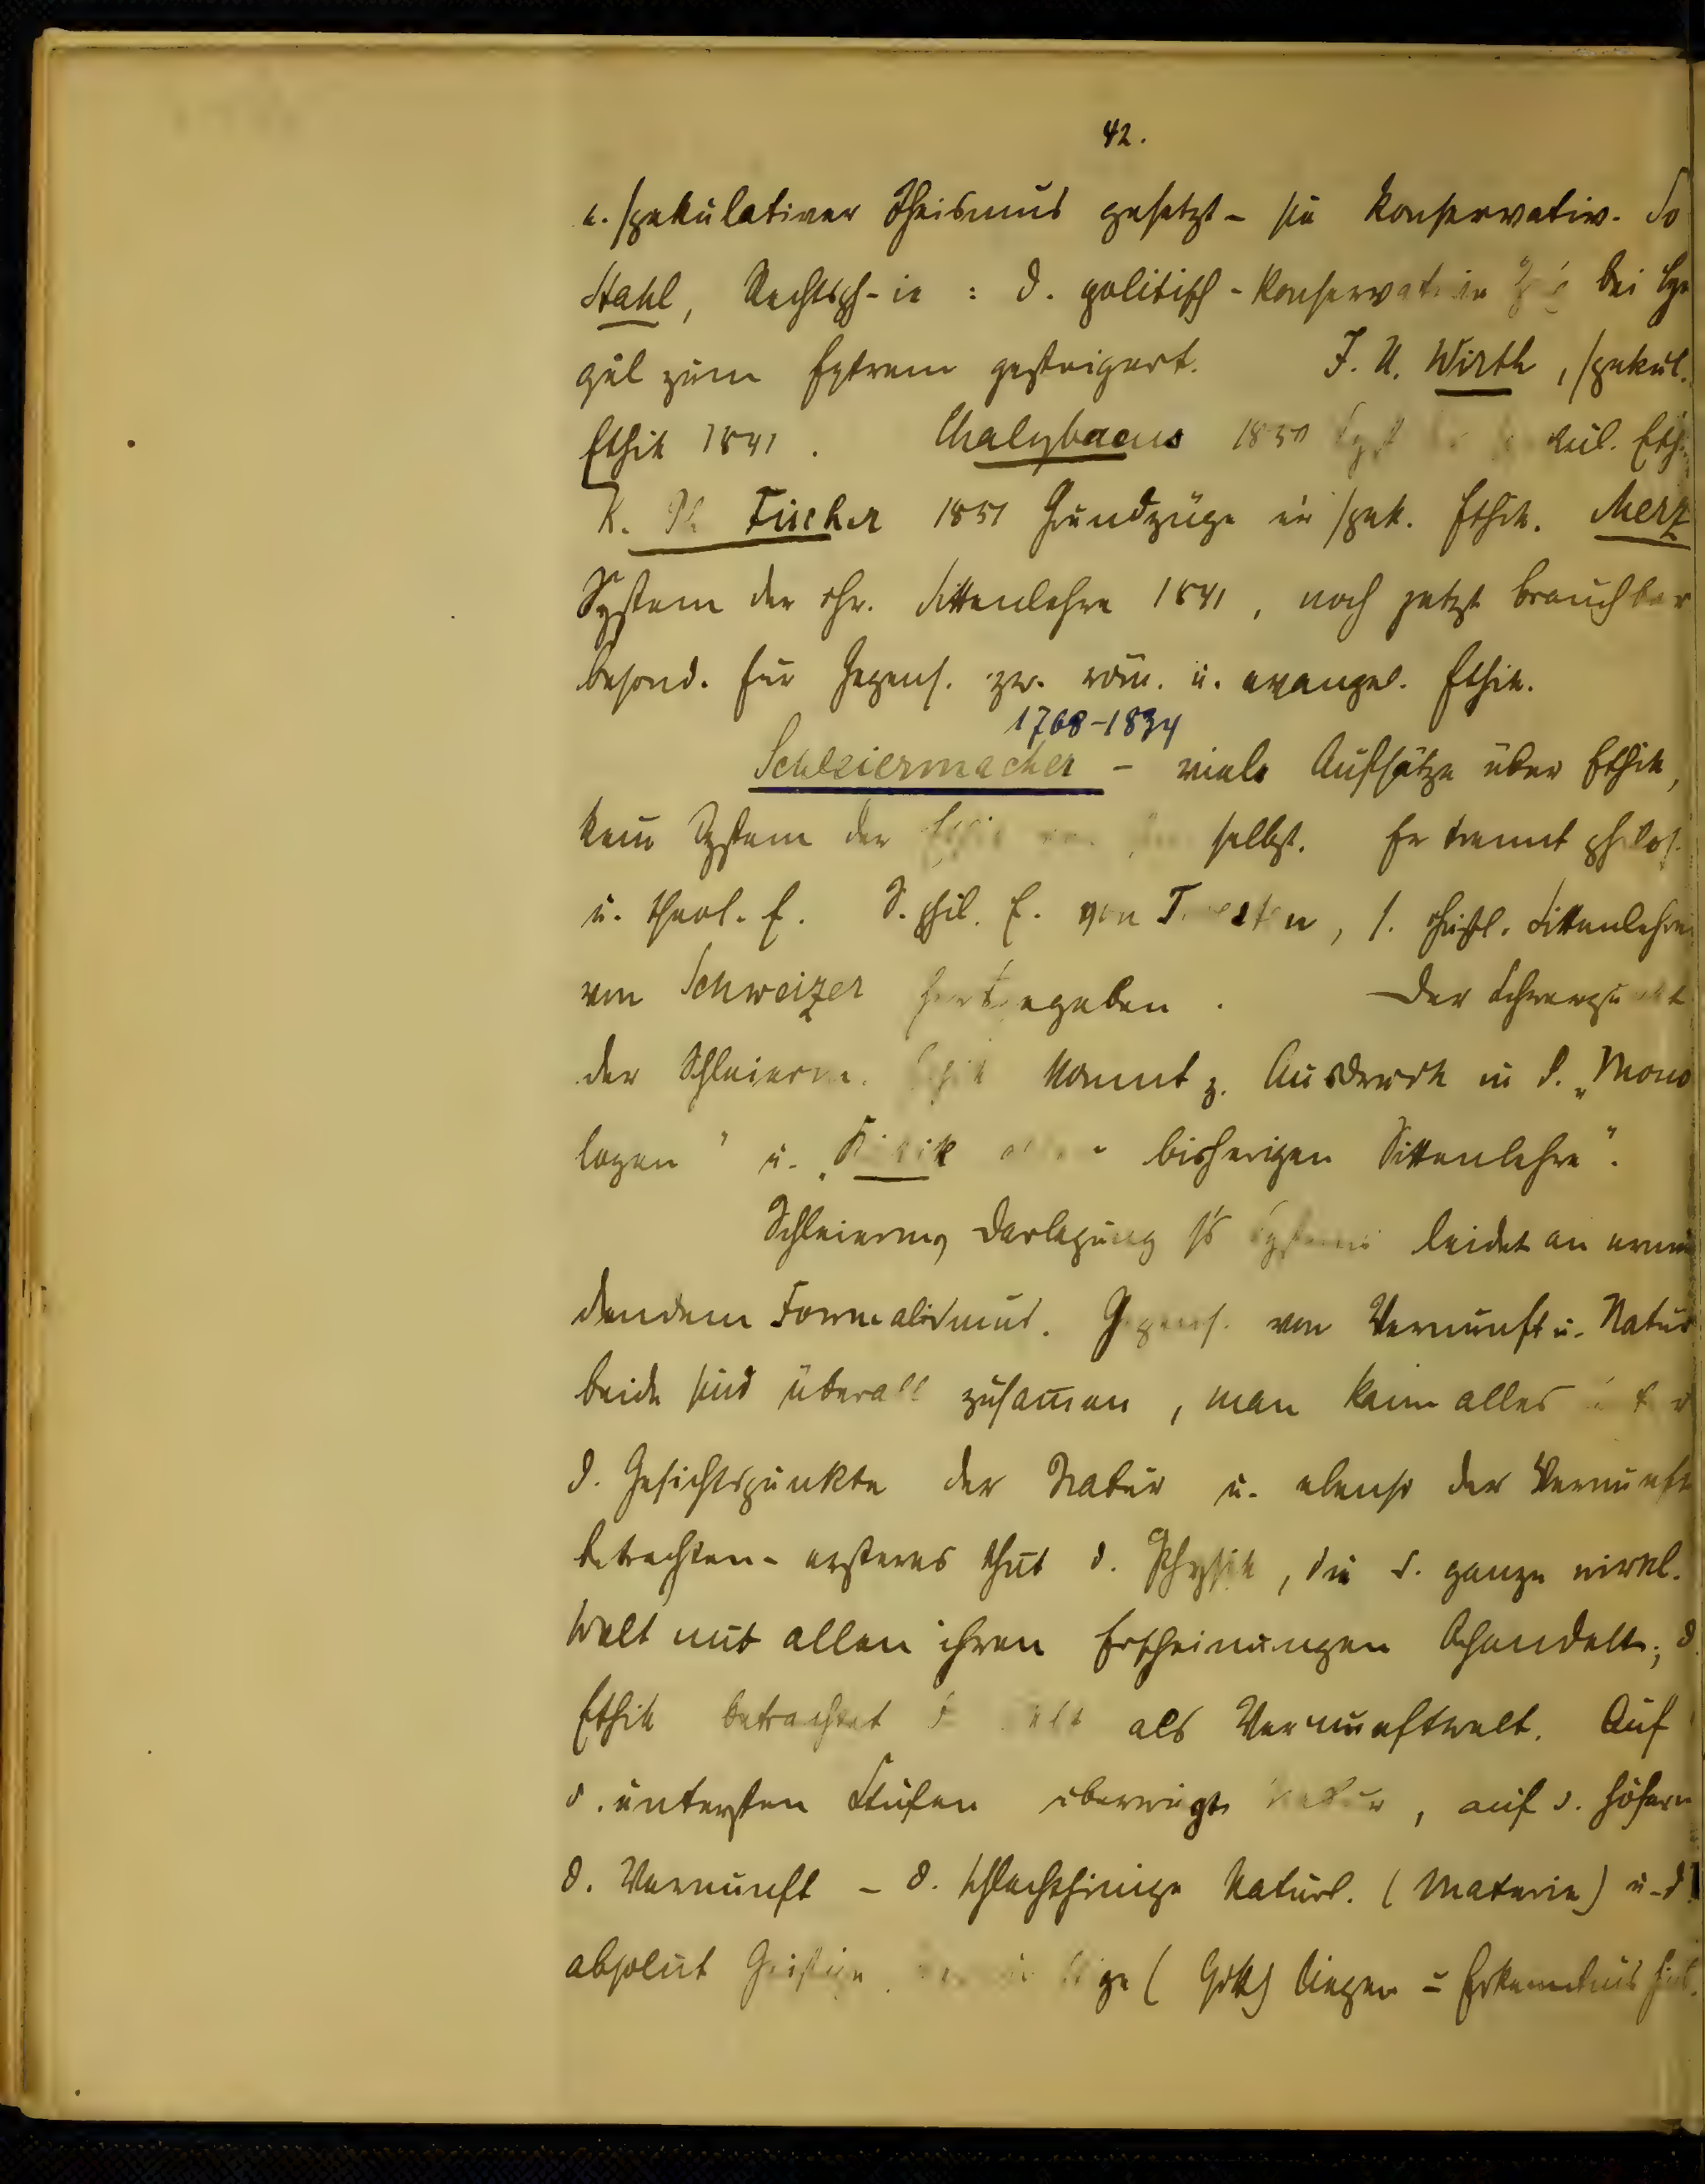 42.
e. spekulativer Theismus gesetzt - sie konservativ. So
Stahl, Rechtsph-ie : d. politisch-konservative Zug bei He
gel zum Extrem gesteigert. J. U. Wirth, spekul.
Ethik 1841. Chalybaeus 1850 kul. Eth
K. Ph Fischer 1851 Grundzüge spek. Ethik. Merz
System der chr. Sittenlehre 1841, noch jetzt brauchbar
besond. für Gegens. zw. röm. u. evangel. Ethik.
1768-1834
Schleiermacher - viele Aufsätze über Ethik,
kein System der Ethik selbst. Er trennt philos.
u. theol. E. S. phil. E. von Twesten, s. christl. Sittenlehre
von Schweizer . Der Schwerpunkt
der Schleierm. Ethik kommt z. Ausdruck in d. „Mono
logen" u. „Kritik aller bisherigen Sittenlehre".
Schleierm. Darlegung s's Systems leidet an ermü
dendem Formalismus. Gegens. von Vernunft u. Natur
beide sind überall zusammen, man kann alles unter
d. Gesichtspunkte der Natur u. ebenso der Vernunft
betrachten - ersteres thut d. Physik, die d. ganze wirkl.
Welt mit allen ihren Erscheinungen behandelt; d.
Ethik betrachtet d. Welt als Vernunftwelt. Auf
d. untersten Stufen überwiegt Natur, auf d. höhern
d. Vernunft - d. schlechthinige Natürl. (Materie) u. d.
absolut Geistige (Gott) liegen Erkenntnis